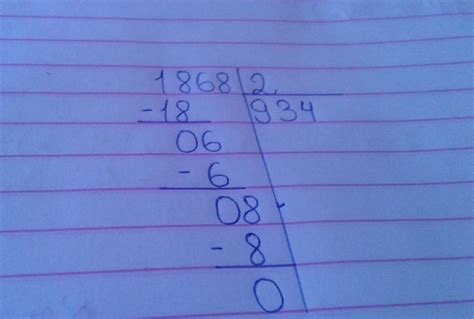 1868 2
-18 934
06
- 6
08
- 8
0